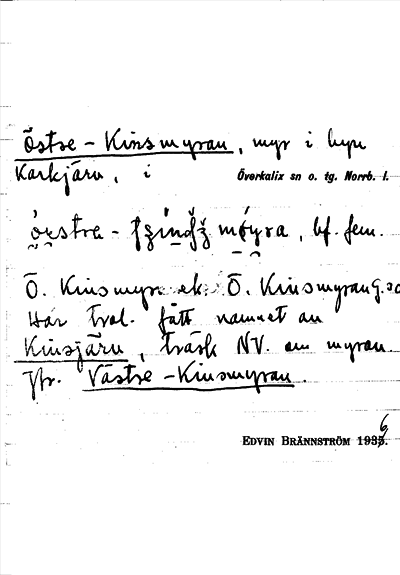 Östre-Kinsmyran, myr i byn
Karkjärv, i Överkalix sn o. tg. Norrb. l.
bf. fem.
Ö. Kinsmyr ek. Ö. Kinsmyran G.
Har trol. fått namnet av
Kinsjärv, träsk NV. om myran.
Jfr. Västre-Kinsmyran.
EDVIN BRÄNNSTRÖM 1936.